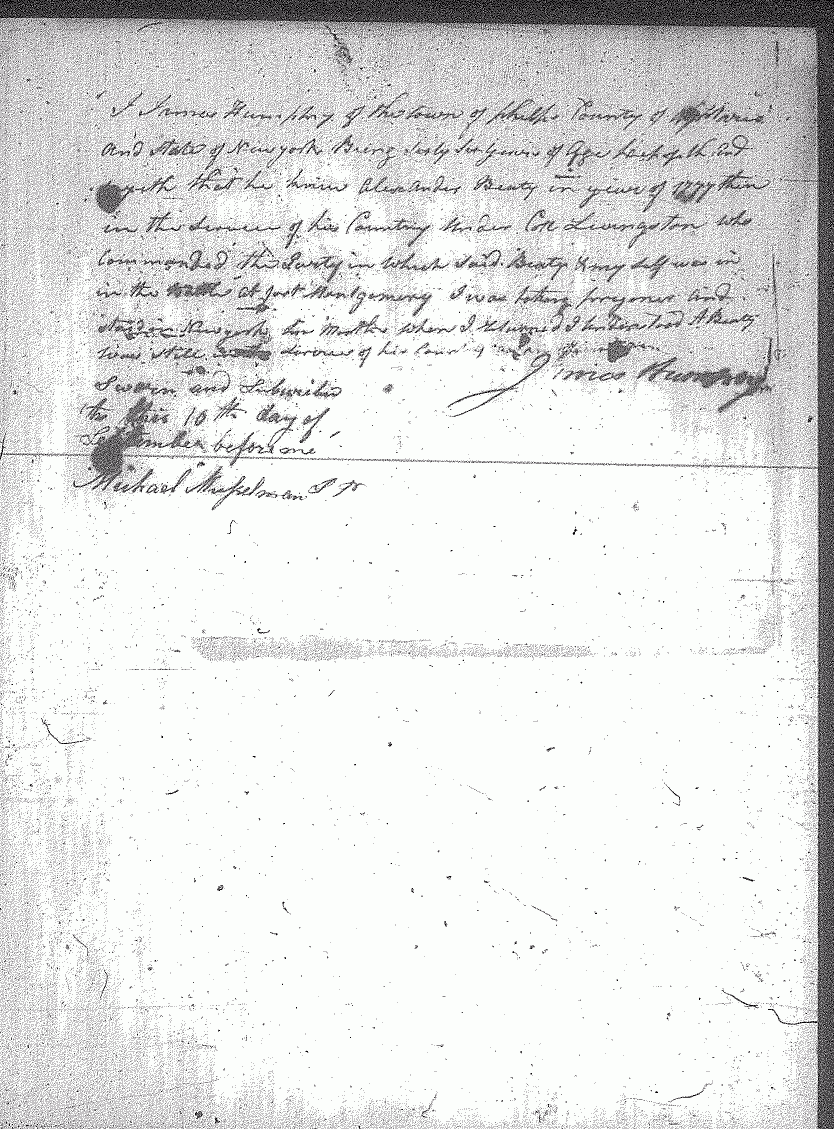 I James Humphry of the town of phelps County of Ontario
and State of New york Being Sixty Six years of Age
sayeth that he knew Alexander Beaty in year of 1777 then
in the Service of his Country Under Coll Livingston who
Commanded the Party in Which Said Beaty & my self was in
in the Battle at fort Montgomery I was taken prisoner and
New york Six Months when I returned I understood A Beaty
was Still service of his Country
James Humphry
Sworn and Subscribed
to this 10th day of
September before me
Michael Musselman J P